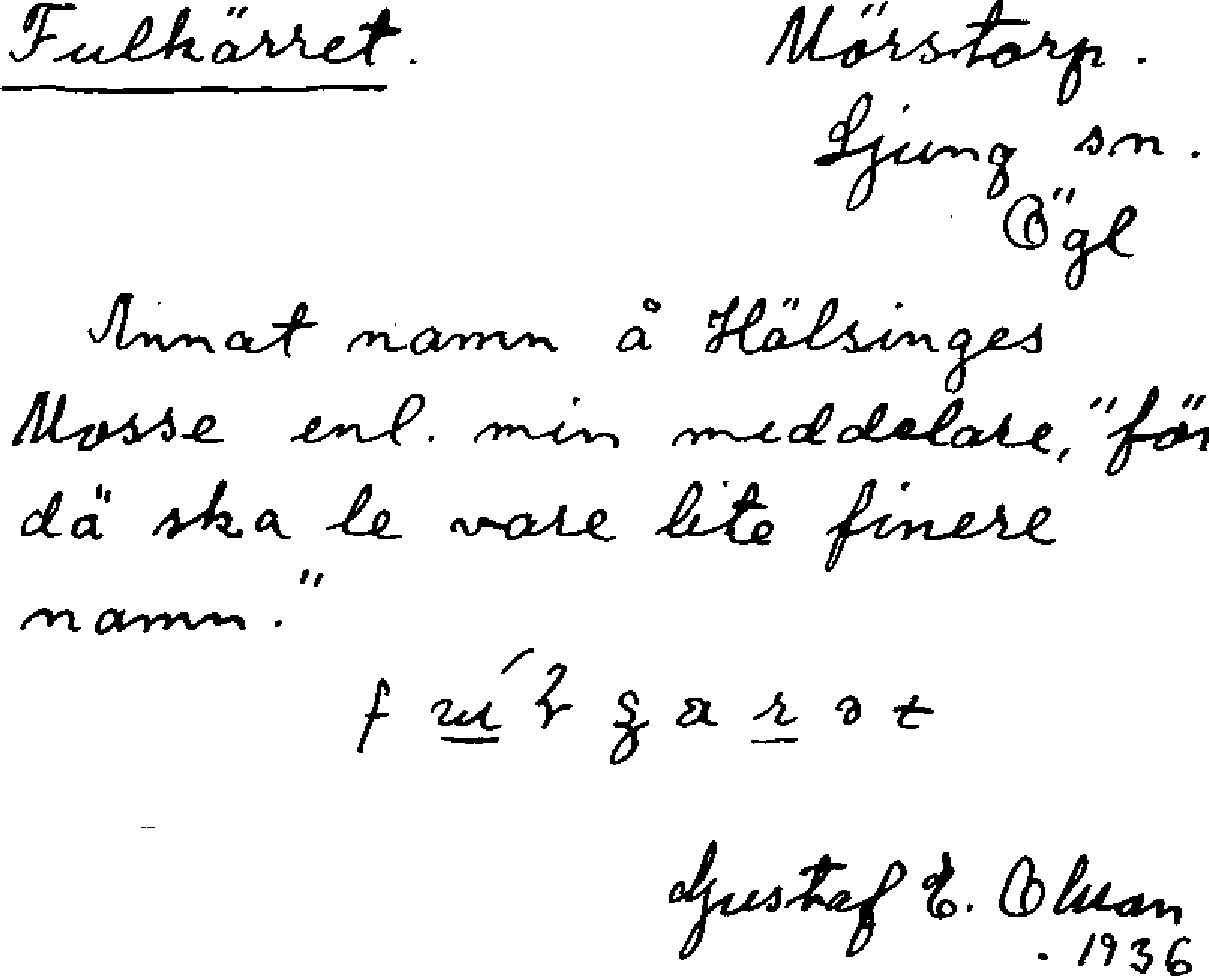 Fulkärret. Mörstorp.
Ljung sn.
Ögl
Annat namn å Hälsinges
Mosse enl. min meddelare, "för
dä ska le vare lite finere
namn."
Gustaf E. Olsson
1936